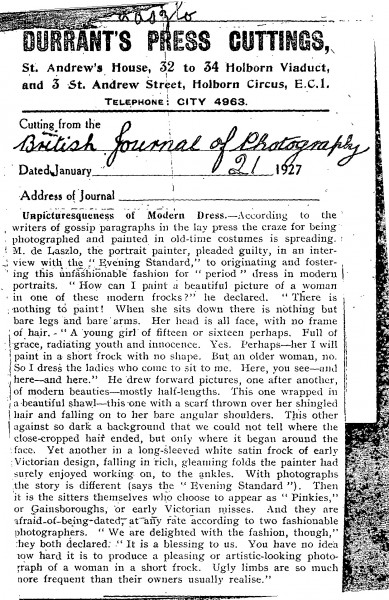 Laszlo
DURRANT'S PRESS CUTTINGS,
St. Andrew's House, 32 to 34 Holborn Viaduct,
and 3 St. Andrew Street, Holborn Circus, E.C.1.
TELEPHONE: CITY 4963.
Cutting from the
British Journal of Photography
Dated January 21 1927
Address of Journal
Unpicturesqueness of Modern Dress.—According to the
writers of gossip paragraphs in the lay press the craze for being
photographed and painted in old-time costumes is spreading.
M. de Laszlo, the portrait painter, pleaded guilty, in an inter-
view with the "Evening Standard," to originating and foster-
ing this unfashionable fashion for "period" dress in modern
portraits. "How can I paint a beautiful picture of a woman
in one of these modern frocks?" he declared. "There is
nothing to paint! When she sits down there is nothing but
bare legs and bare arms. Her head is all face, with no frame
of hair. "A young girl of fifteen or sixteen perhaps. Full of
grace, radiating youth and innocence. Yes. Perhaps—her I will
paint in a short frock with no shape. But an older woman, no.
So I dress the ladies who come to sit to me. Here, you see—and
here—and here." He drew forward pictures, one after another,
of modern beauties—mostly half-lengths. This one wrapped in
a beautiful shawl—this one with a scarf thrown over her shingled
hair and falling on to her bare angular shoulders. This other
against so dark a background that we could not tell where the
close-cropped hair ended, but only where it began around the
face. Yet another in a long-sleeved white satin frock of early
Victorian design, falling in rich, gleaming folds the painter had
surely enjoyed working on, to the ankles. With photographs
the story is different (says the "Evening Standard"). Then
it is the sitters themselves who choose to appear as "Pinkies,"
or Gainsboroughs, or early Victorian misses. And they are
afraid of being dated, at any rate according to two fashionable
photographers. "We are delighted with the fashion, though,"
they both declared. "It is a blessing to us. You have no idea
how hard it is to produce a pleasing or artistic-looking photo-
graph of a woman in a short frock. Ugly limbs are so much
more frequent than their owners usually realise."